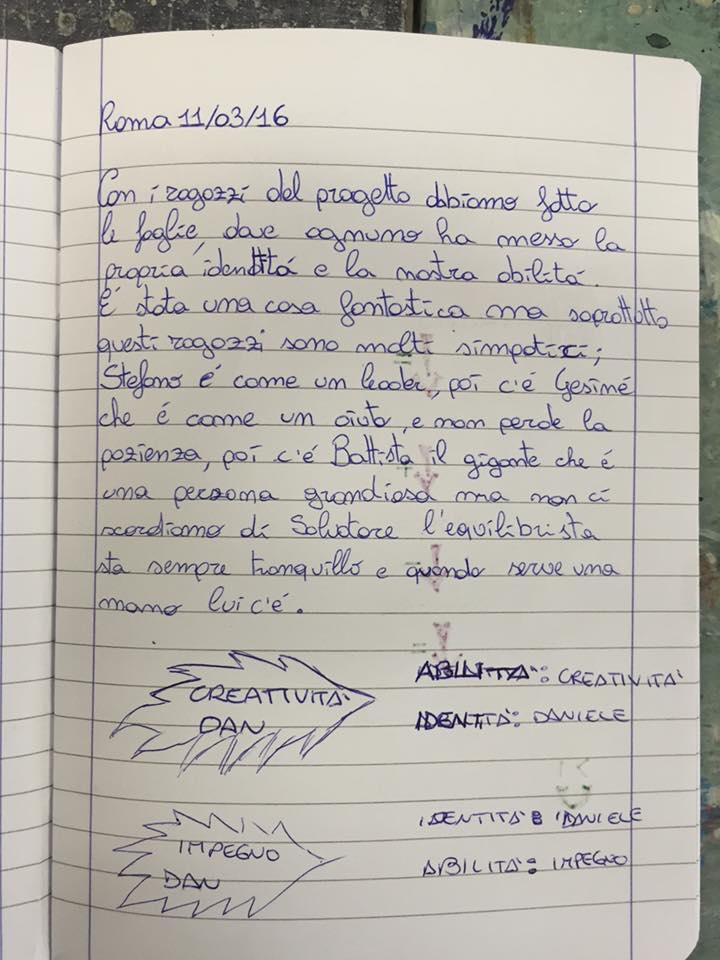 Roma 11/03/16
Con i ragazzi del progetto abbiamo fatto
le foglie, dove ognuno ha messo la
propria identitá e la nostra abilitá.
É stata una cosa fantastica ma soprattotto
questi ragazzi sono molti simpatici;
Stefano é come un leader, poi c'é Gesimé
che é come un aiuto, e non perde la
pazienza, poi c'é Battista il gigante che é
una persona grandiosa ma non ci
scordiamo di Salvatore l'equilibrista
sta sempre tranquillo e quando serve una
mano lui c'é.
CREATTIVITA'
DAN
ABILITA': CREATIVITA'
IDENTITA': DANIELE
IMPEGNO
DAN
IDENTITA': DANIELE
ABILITA': IMPEGNO